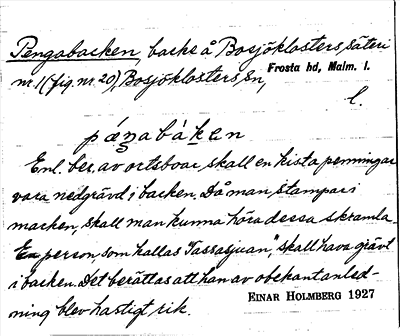 Pengabacken, backe å Bosjöklosters säteri
nr. 1 (fig. nr. 20), Bosjöklosters sn,
Frosta hd, Malm. l.
l.
Enl. ber. av ortsbor skall en kista penningar
vara nedgrävd i backen. Då man stampar i
marken, skall man kunna höra dessa skramla.
En person, som kallas "Tassasjuan," skall hava grävt
i backen. Det berättas att han av obekant anled-
ning blev hastigt rik.
EINAR HOLMBERG 1927